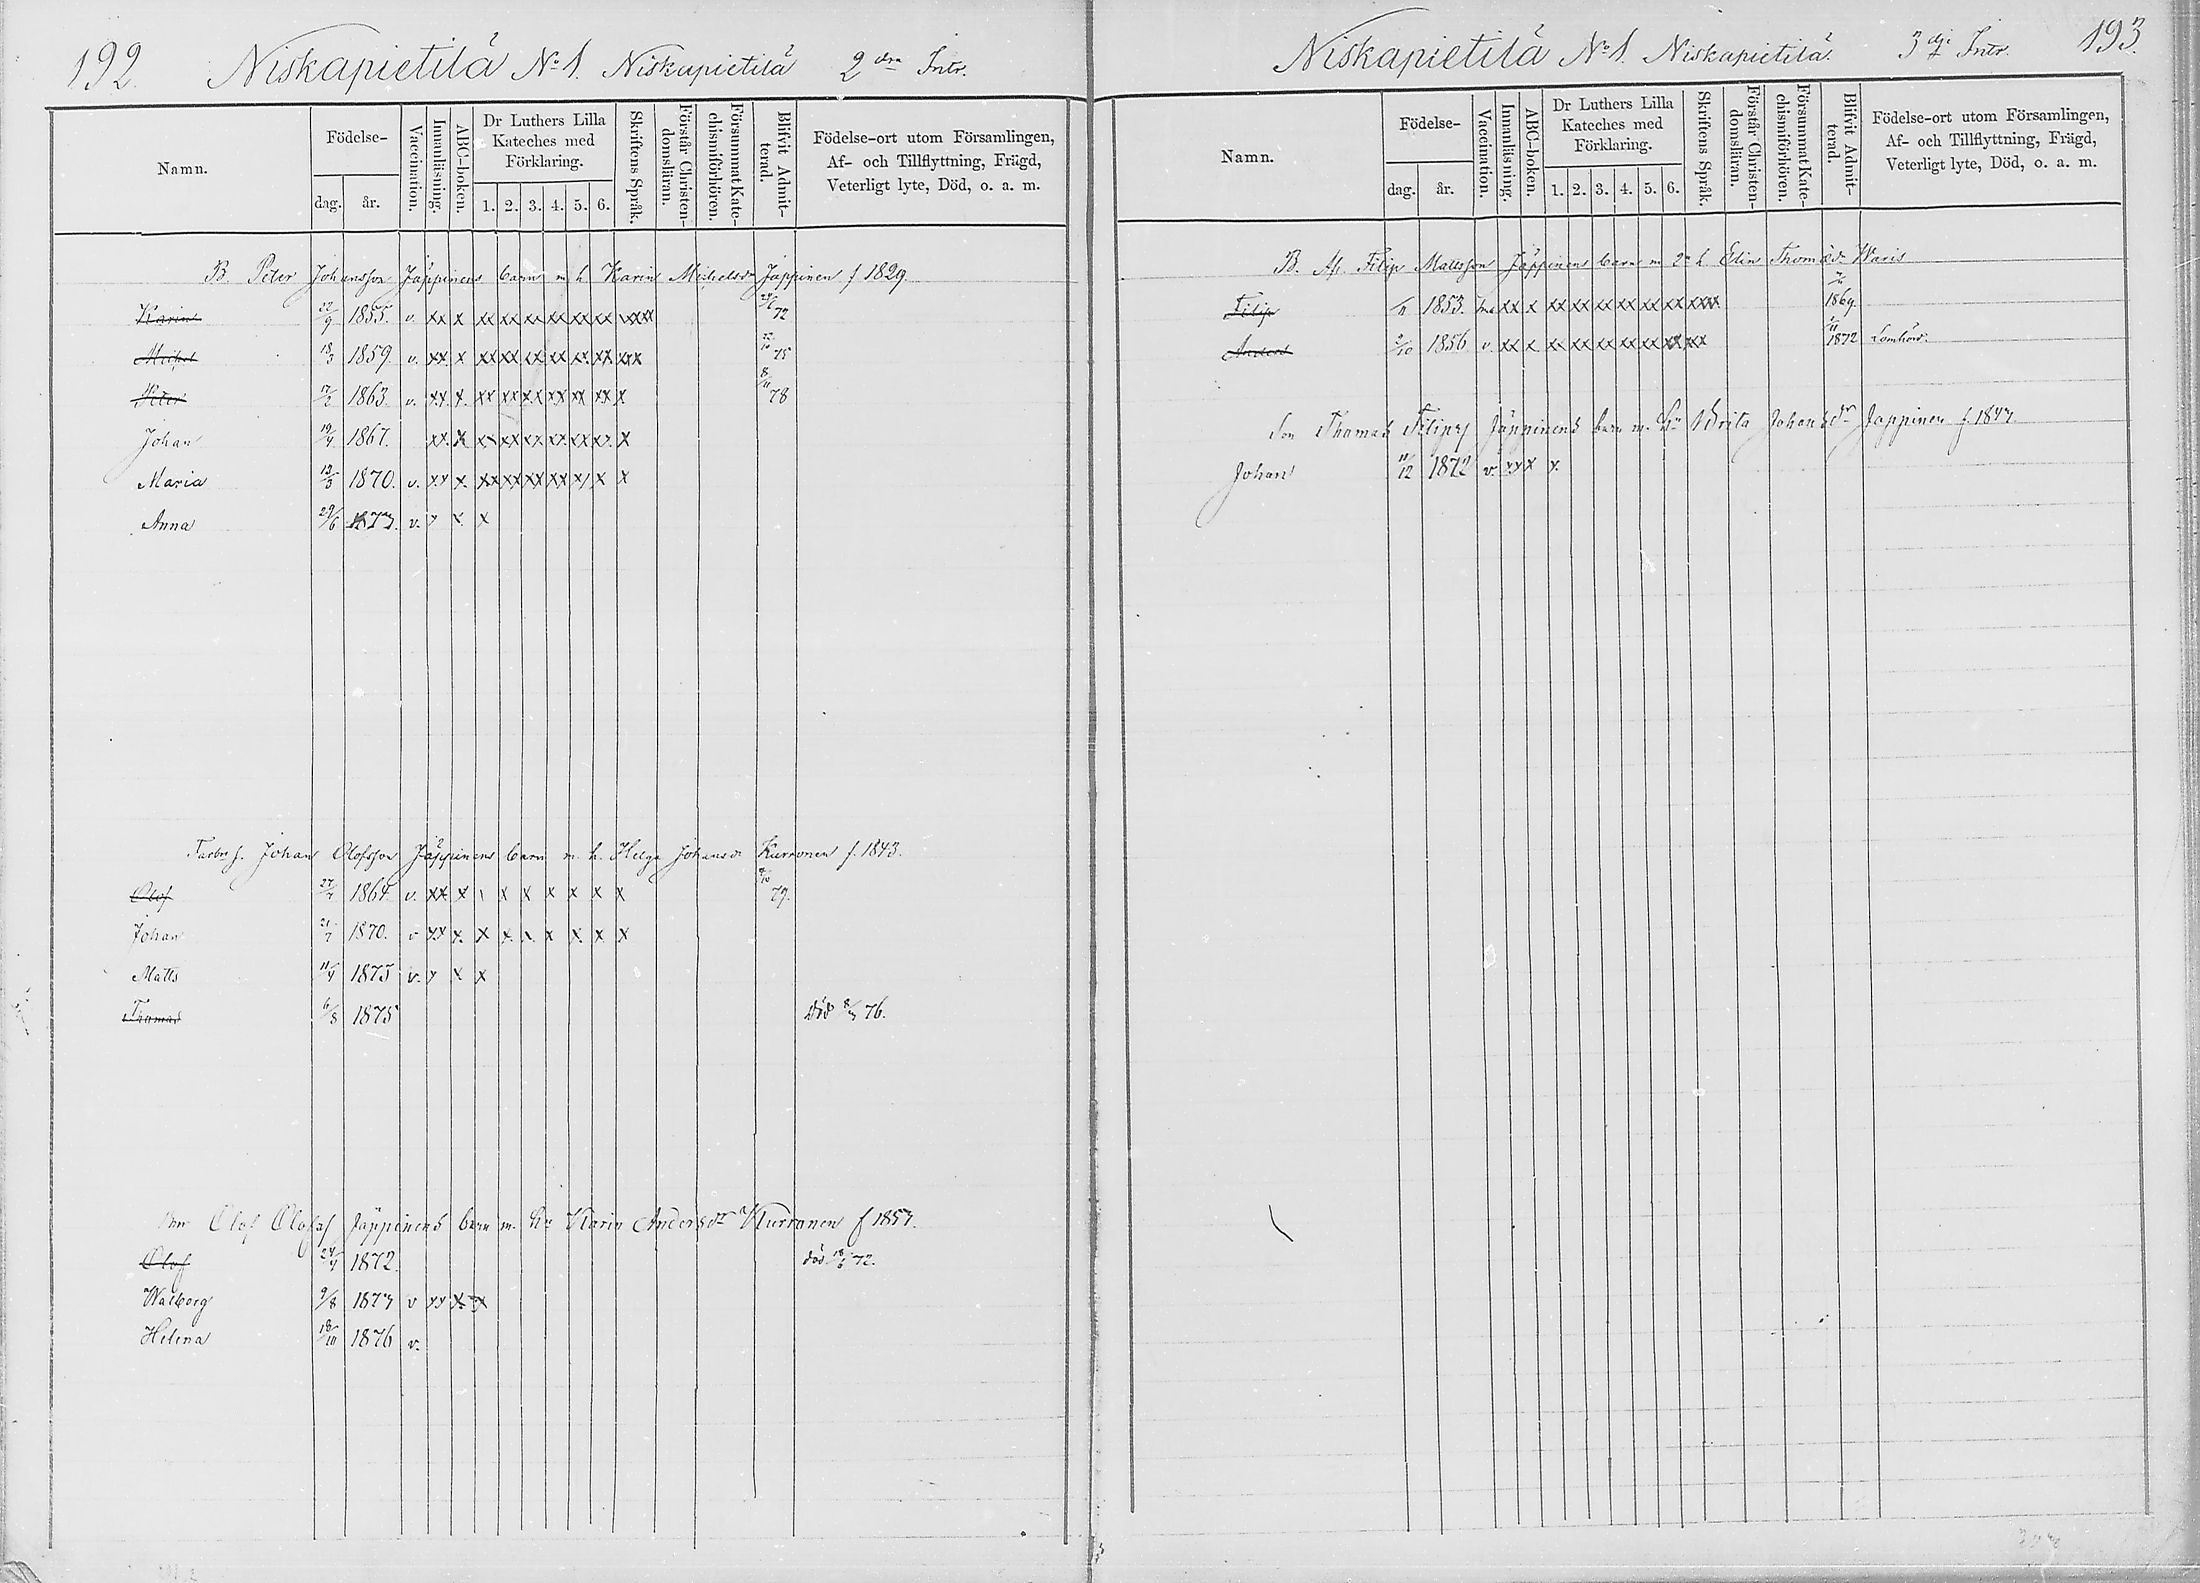 192. Niskapietilä No 1. Niskapietilä 2dra Intr.
Namn. Födelse- dag. år. Vaccination. Innanläsning. ABC-boken. Dr Luthers Lilla Kateches med Förklaring. 1. 2. 3. 4. 5. 6. Skriftens Språk. Förstår Christen-domsläran. Försummat Kate-chismiförhören. Blifvit Admit-terad. Födelse-ort utom Församlingen, Af- och Tillflyttning, Frägd, Veterligt lyte, Död, o. a. m.
B. Peter Johansson Jäppinens barn m h Karin Michelsdr Jäppinen f 1829.
Karin 22/9 1855. v. xx x xx xx xx xx xx xx xxx 72
18/3 1859. v. xx x xx xx xx xx xx xx xxx 75
Peter 17/2 1863. v. xx x. xx xx xx xx xx xx x 8/11 78
Johan 19/4 1867. xx. x xx xx xx xx xx x
Maria 12/3 1870. v. xx x. xx xx xx xx x x x
Anna 29/6 1873. v. x x x
Johan Olofsson Jäppinens barn m. h. Helga Johansdr Kurronen f. 1843.
Olof 1864 v. xx x x x x x x x 79.
Johan 21/7 1870. v xx x. x x. x. x x. x x
Matts 11/4 1873 v. x x x
Thomas 6/8 1875 död 76.
Olof Olofss Jäppinens barn m. hu Karin Andersdr Kurronen f 1857.
Olof 24/4 1872. död 18/6 72.
Walborg 9/8 1873 v xx x x
Helena 18/10 1876 v.
Niskapietilä No 1. Niskapietilä. 3dje Intr. 193.
Namn. Födelse- dag. år. Vaccination. Innanläsning. ABC-boken. Dr Luthers Lilla Kateches med Förklaring. 1. 2. 3. 4. 5. 6. Skriftens Språk. Förstår Christen-domsläran. Försummat Kate-chismiförhören. Blifvit Admit-terad. Födelse-ort utom Församlingen, Af- och Tillflyttning, Frägd, Veterligt lyte, Död, o. a. m.
B. Filip Mattsson Jäppinens barn m 2a h Elin Thomædr Waris
Filip 1853. xx x xx xx xx xx xx xx xxx 1869.
Anders 2/10 1856 v. xx x x xx xx xx xx xx xx 1872
Son Thomas Filipss Jäppinens barn m. hu Brita Johansdr Jäppinen f. 1847.
Johan 11/12 1872 v. xx x x.